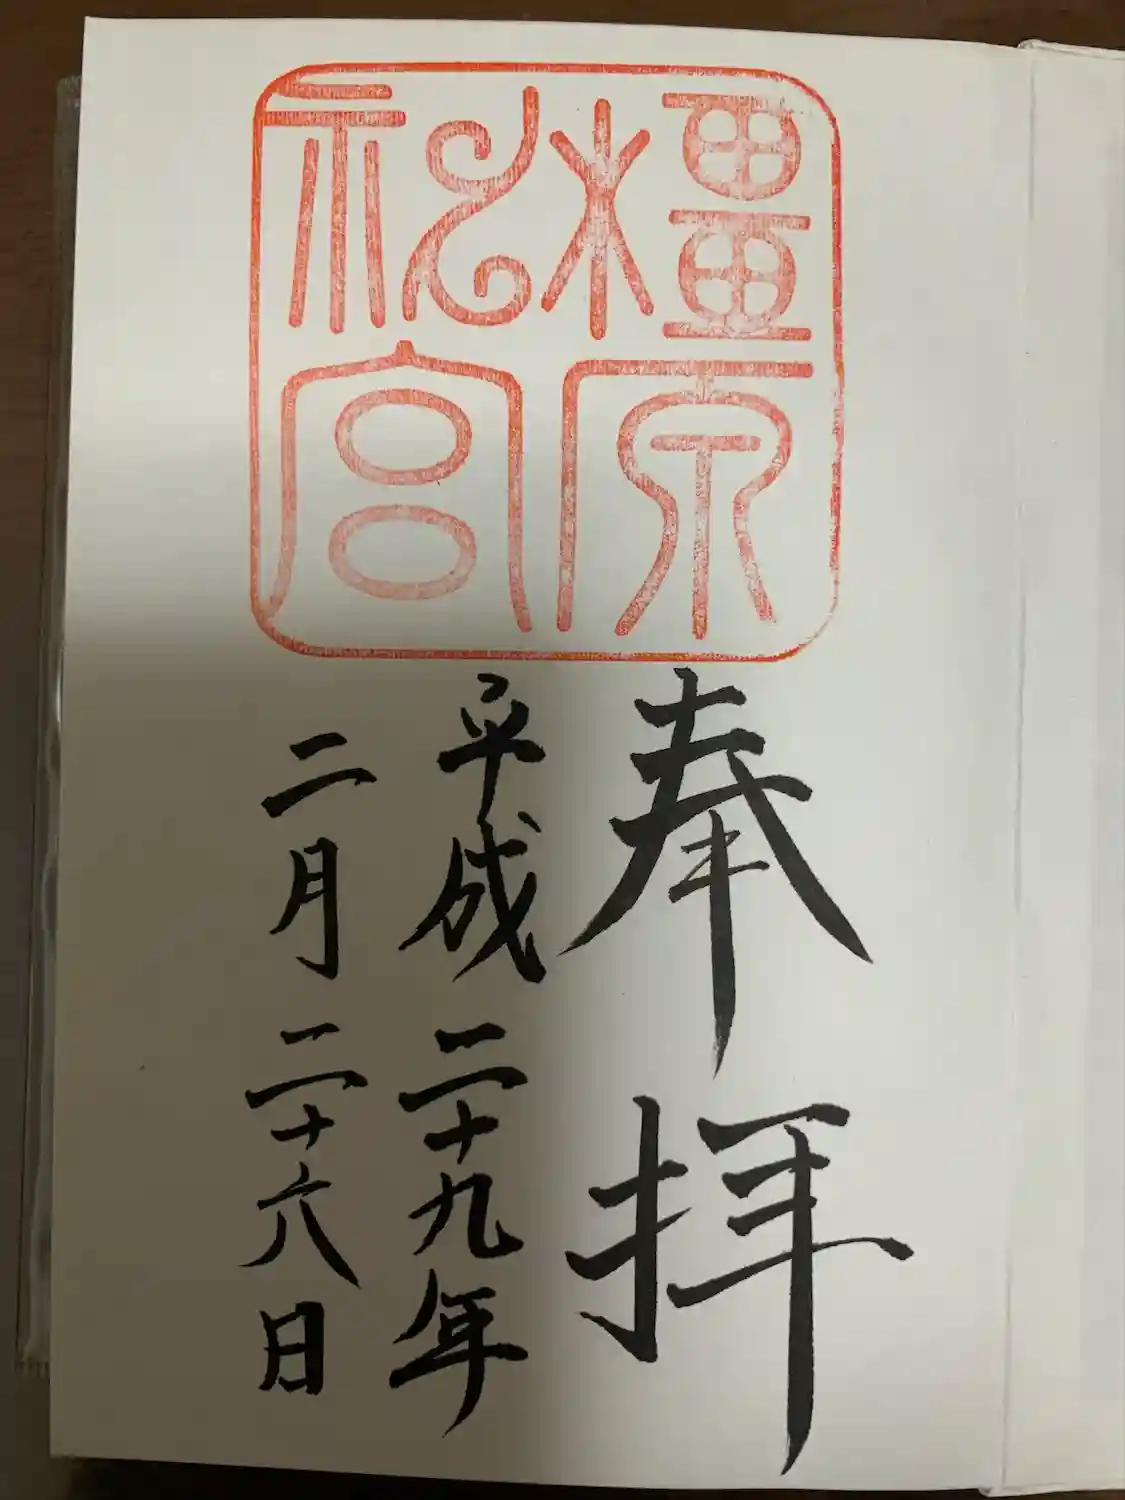 橿原
神宮
奉拝
平成二十九年
二月二十六日